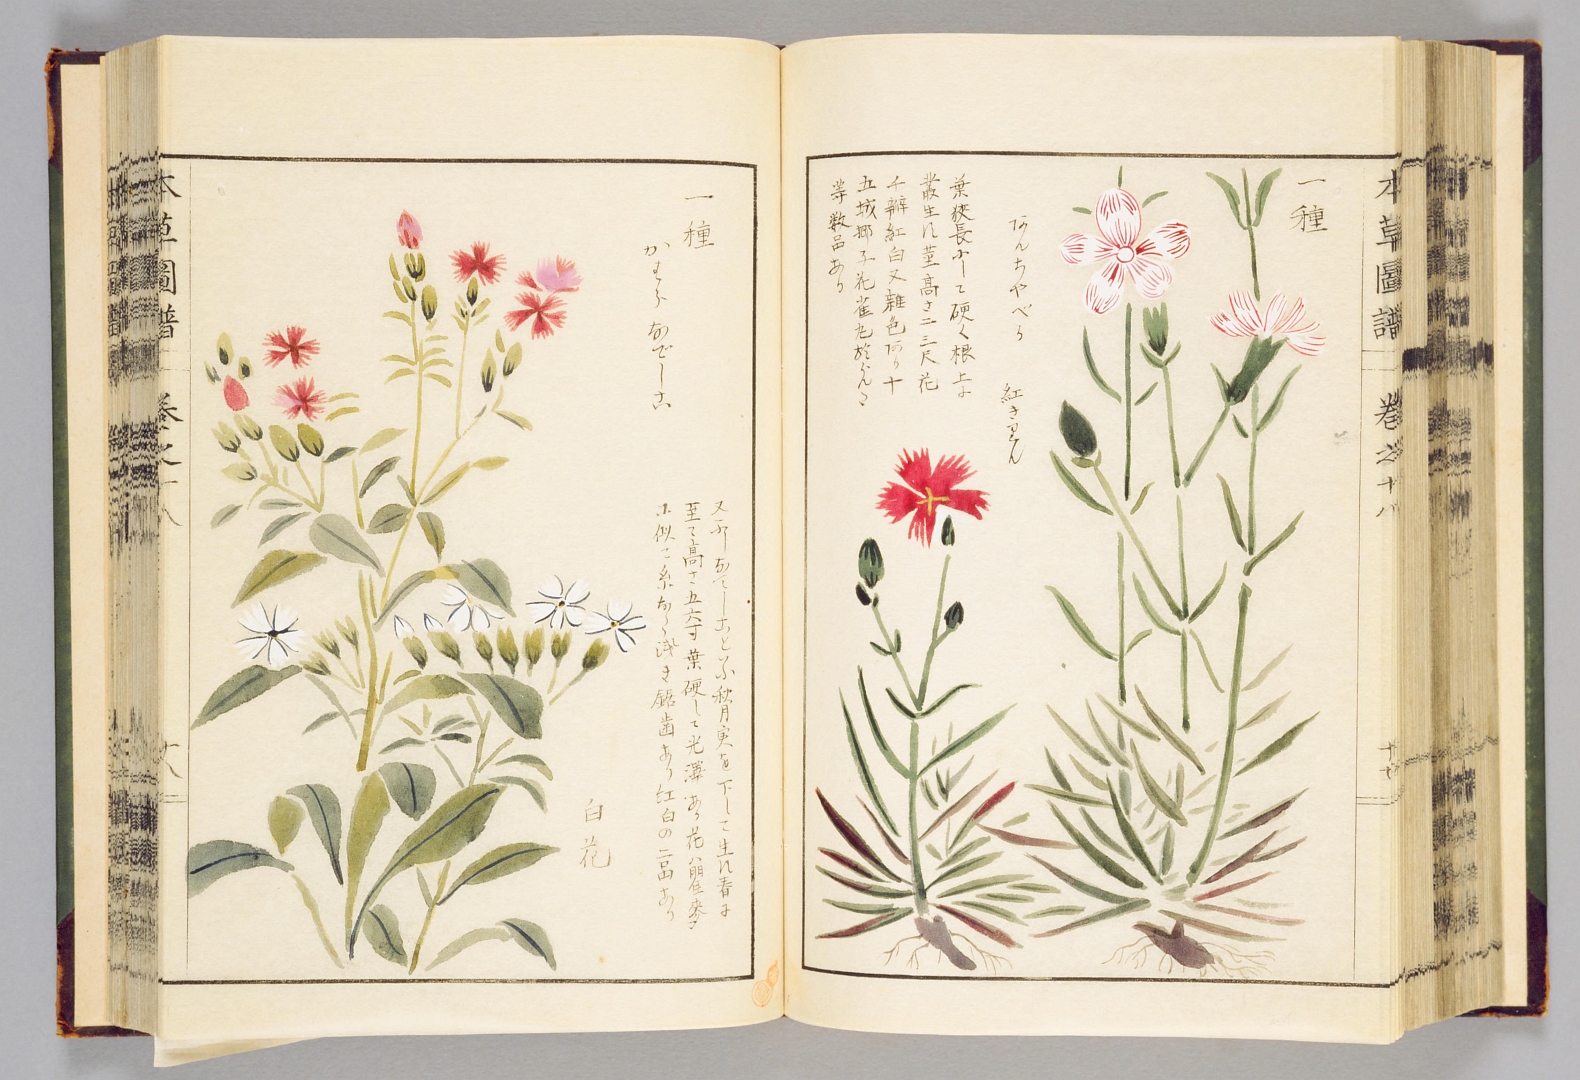 本草圖譜 巻之十八
十七
一種
あんちやべる
紅きをん
葉狭長にして硬く根上に
叢生れ莖高さ二三尺花
千瓣紅白又雜色あり十
五城郷子花
等数品あり
一種
かまくらなでしこ
又ふしなてしことふ秋月実を下して生れ春に
至て高さ五六寸葉硬して光澤あり花ハ瞿麥
に似て糸なく浅き鋸歯あり紅白の二品あり
白花
本草圖譜 巻之十八